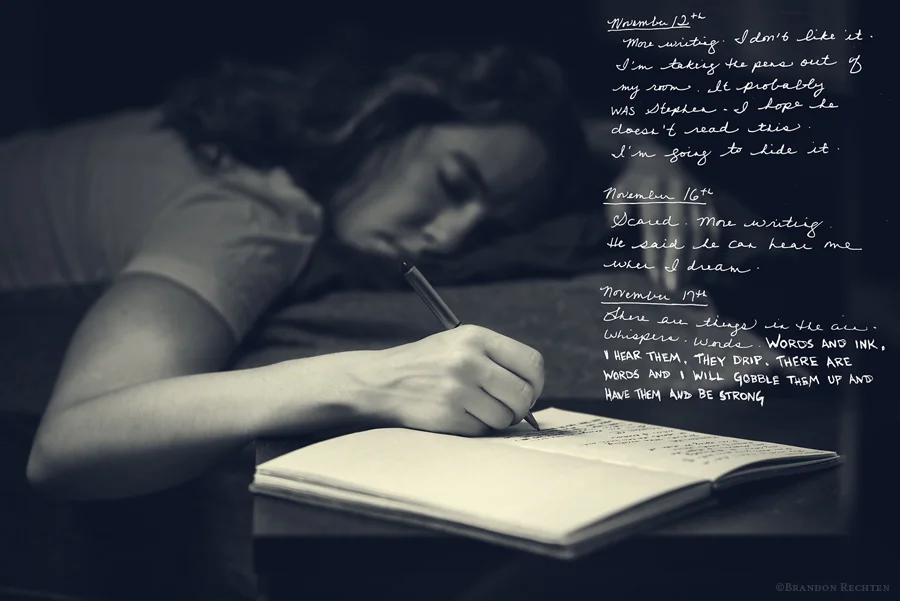 November 12th
More writing. I don't like it.
I'm taking the pens out of
my room. It probably
was Stephen. I hope he
doesn't read this.
I'm going to hide it.
November 16th
Scared. More writing.
He said he can hear me
when I dream.
November 17th
There are things in the air.
Whispers. Words. WORDS AND INK.
I HEAR THEM. THEY DRIP. THERE ARE
WORDS AND I WILL GOBBLE THEM UP AND
HAVE THEM AND BE STRONG
©BRANDON RECHTEN